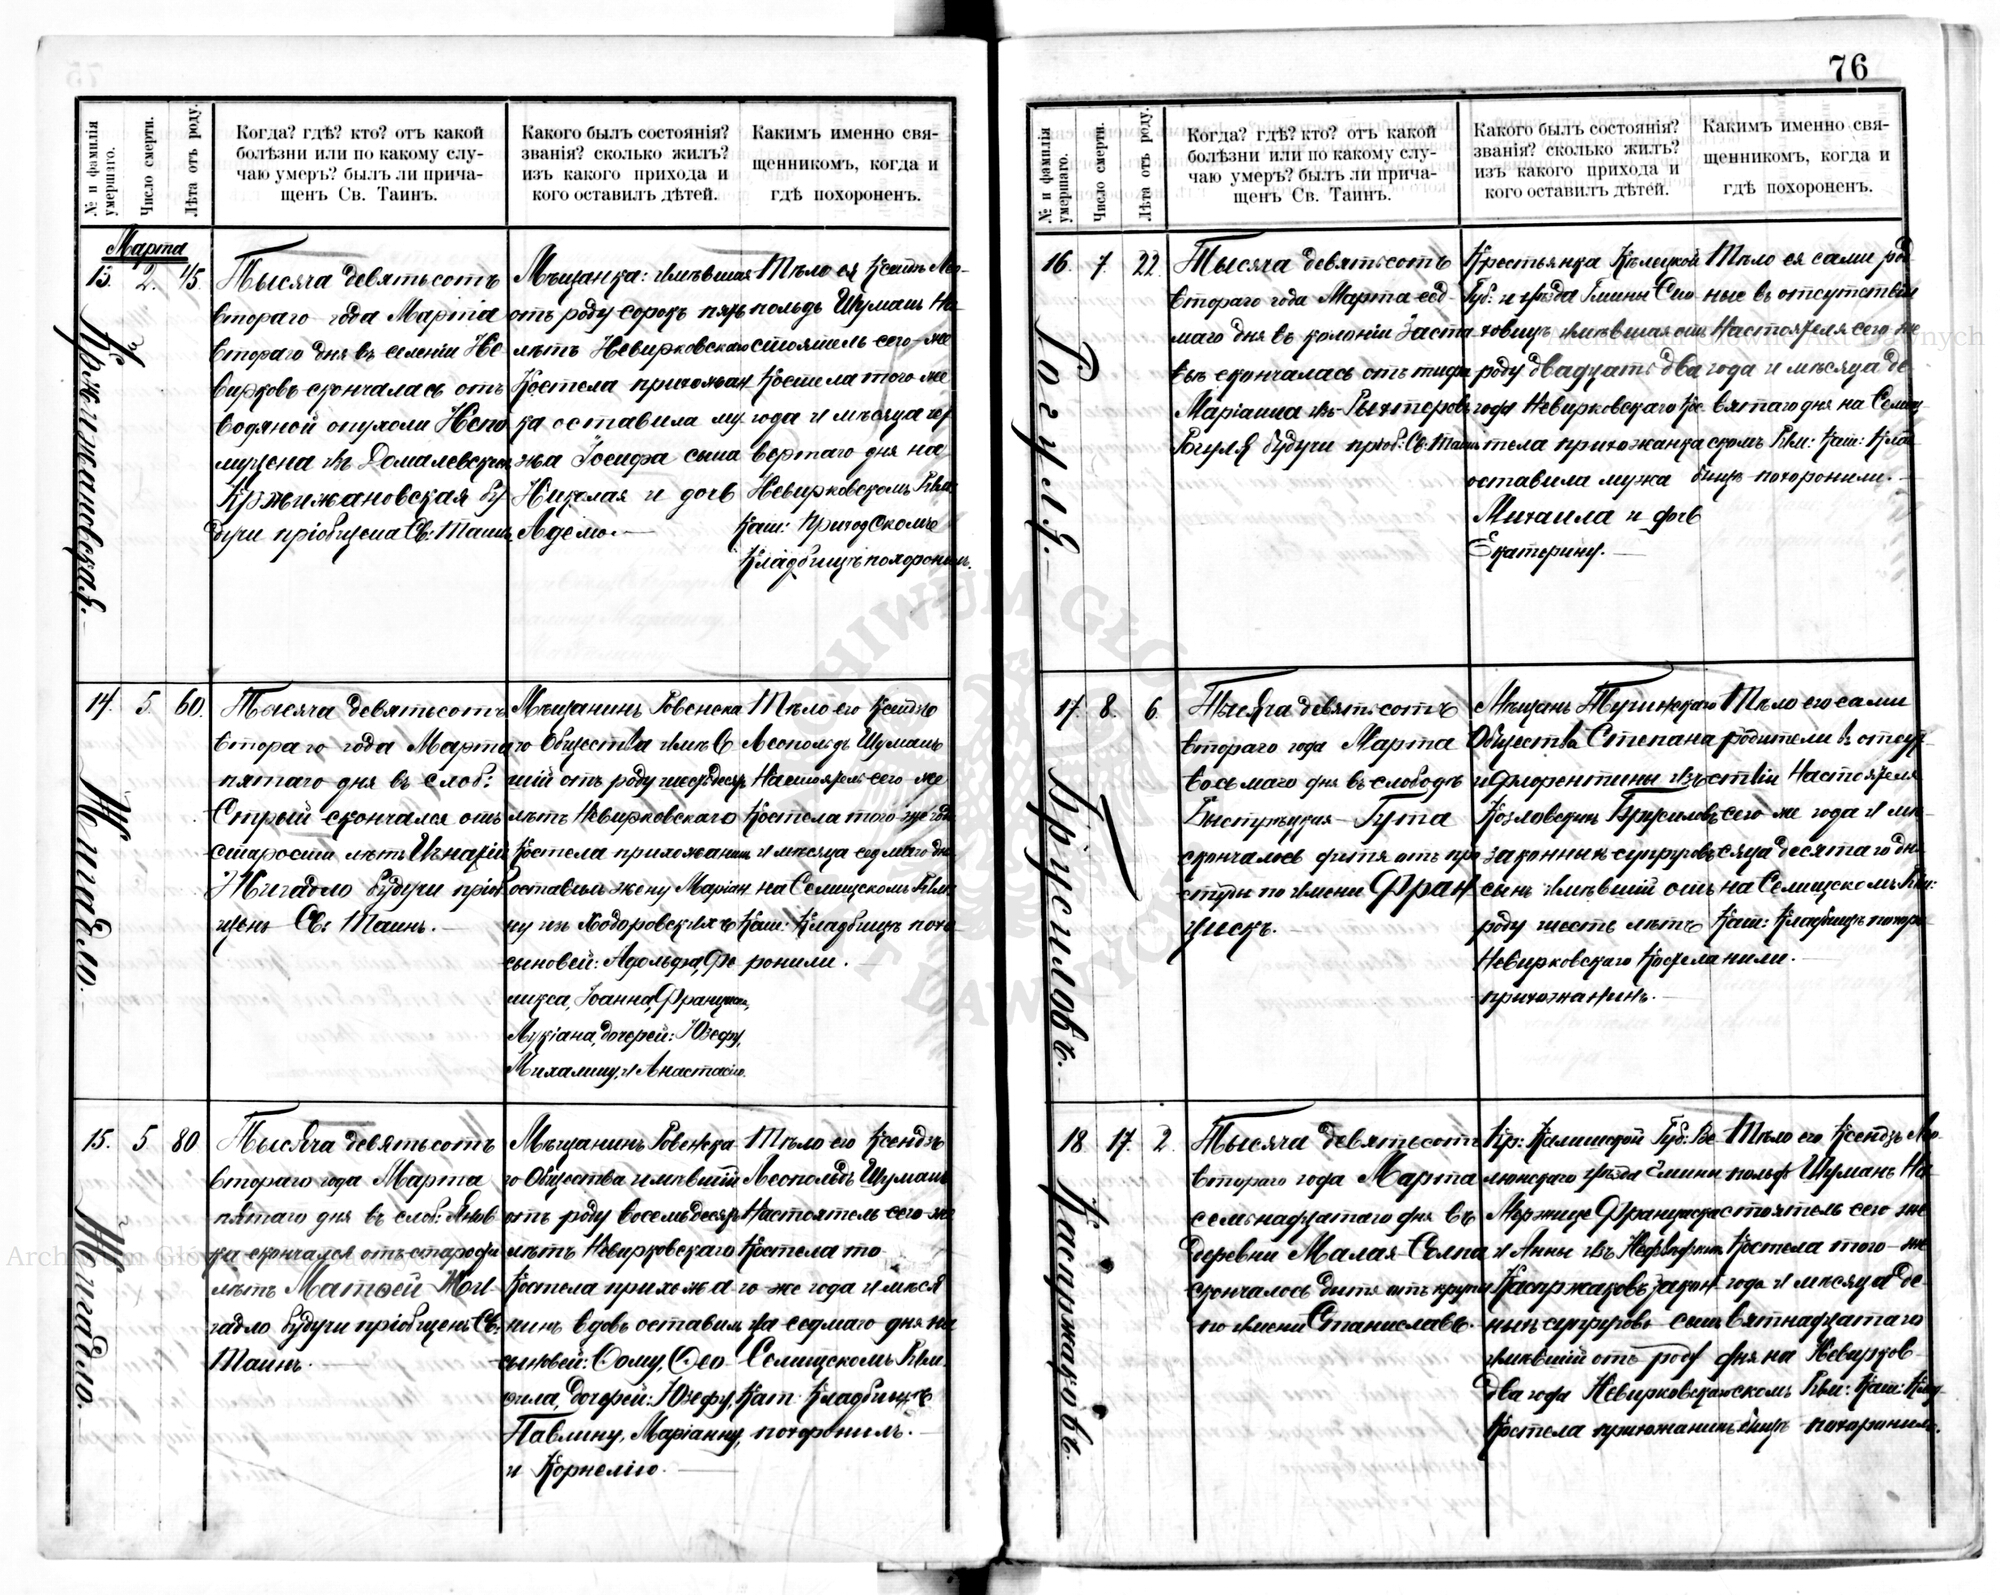 76
№ и фамилія умершаго.
Число смерти.
Лѣта отъ роду.
Когда? гдѣ? кто? отъ какой
болѣзни или по какому слу-
чаю умеръ? былъ ли прича-
щенъ Св. Таинъ.
Какого былъ состоянія?
званія? сколько жилъ?
изъ какого прихода и
кого оставилъ дѣтей.
Какимъ именно свя-
щенникомъ, когда и
гдѣ похороненъ.
Марта
13. 2. 45.
Кржижановская.
Тысяча девятьсотъ
втораго года Марта
втораго дня въ селеніи Не
вирковъ скончалась отъ
водяной опухоли
изъ Домалевскихъ
Кржижановская бу
дучи пріобщена Св: Таинъ.
Мѣщанка: имѣвшая
отъ роду сорокъ пять
лѣтъ Невирковскаго
Костела прихожан
ка оставила му
жа Іосифа сына
Николая и дочь
Адслю.
Тѣло ея Ксендзъ Лео-
польдъ Шуманъ На-
стоятель сего-же
Костела того же
года и мѣсяца чет
вертаго дня на
Невирковскомъ Рим:
Кат: Приходскомъ
Кладбищѣ похоронилъ.
14. 5. 60.
Жигадло.
Тысяча девятьсотъ
втораго года Марта
пятаго дня въ слоб:
Стрый скончался отъ
старости лѣтъ Игнатій
Жигадло будучи пріоб
щенъ Св: Таинъ.
Мѣщанинъ Ровенска
го Общества имѣв
шій отъ роду шестьдесятъ
лѣтъ Невирковскаго
Костела прихожанинъ
оставилъ жену Маріан
ну изъ Ходоровскихъ
сыновей: Адольфа, Фе
ликса, Іоанна, Франциска,
Лукіана, дочерей: Юзефу,
Михалину, и Анастасію.
Тѣло его Ксендзъ
Леопольдъ Шуманъ
Настоятель сего же
Костела того-же года
и мѣсяца седмаго дня
на Селищскомъ Рим:
Кат: Кладбищѣ похо
ронили.
15. 5. 80
Жигадло.
Тысяча девятьсотъ
втораго года Марта
пятаго дня въ слоб: Янов
ка скончался отъ старости
лѣтъ Матѳей Жи-
гадло будучи пріобщенъ Св:
Таинъ.
Мѣщанинъ Ровенска
го Общества имѣвшій
отъ роду восемьдесятъ
лѣтъ Невирковскаго
Костела прихожа
нинъ вдовъ оставилъ
сыновей: Ѳому, Ѳео
фила, Дочерей: Юзефу,
Павлину, Маріанну,
и Корнелію.
Тѣло его Ксендзъ
Леопольдъ Шуманъ
Настоятель сего-же
Костела то
го-же года и мѣся
ца седмаго дня на
Селищскомъ Рим.
Кат. Кладбищѣ
похоронилъ.
№ и фамилія умершаго.
Число смерти.
Лѣта отъ роду.
Когда? гдѣ? кто? отъ какой
болѣзни или по какому слу-
чаю умеръ? былъ ли прича-
щенъ Св. Таинъ.
Какого былъ состоянія?
званія? сколько жилъ?
изъ какого прихода и
кого оставилъ дѣтей.
Какимъ именно свя-
щенникомъ, когда и
гдѣ похороненъ.
16. 7. 22
Рогуля.
Тысяча девятьсотъ
втораго года Марта сед-
маго дня въ колоніи Заста
вье скончалась отъ тифа
Маріанна изъ Рыхтеровъ
Рогуля будучи пріоб: Св: Таинъ
Крестьянка Кѣлецкой
Губ: и уѣзда Гмины
имѣвшая отъ
роду двадцать два года и мѣсяца де
года Невирковскаго Кос
тела прихожанка
оставила мужа
Михаила и дочь
Екатерину.
Тѣло ея сами род
ные въ отсутствіи
Настоятеля сего-же
вятаго дня на Селищ
скомъ Рим: Кат: Клад
бищѣ похоронили.
17. 8. 6.
Брусиловъ.
Тысяча девятьсотъ
втораго года Марта
восьмаго дня въ слободѣ
Гута
скончалось дитя отъ про
студы по имени Фран
цискъ.
Мѣщанъ Тучинскаго
Общества Степана
и Флорентины изъ
Козловскихъ Брусиловъ
законныхъ супруговъ
сынъ имѣвшій отъ
роду шесть лѣтъ
Невирковскаго Костела
прихожанинъ.
Тѣло его сами
родители въ отсут
ствіи Настоятеля
сего же года и мѣ
сяца десятаго дня
на Селищскомъ Рим:
Кат: Кладбищѣ похоро
нили.
18 17. 2.
Каспржаковъ.
Тысяча девятьсотъ
втораго года Марта
семнадцатаго дня въ
деревни Малая-Селпа
скончалось дитя отъ крупа
по имени Станиславъ.
Кр: Калишской Губ: Ве
люнскаго уѣзда Гмины
Мѣржице Франциска
и Анны изъ
Каспржаковъ закон
ныхъ супруговъ сынъ
имѣвшій отъ роду
два года Невирковскаго
Костела прихожанинъ
Тѣло его Ксендзъ Лео
польдъ Шуманъ На
стоятель сего же
Костела того-же
года и мѣсяца де
вятнадцатаго
дня на Невирков-
скомъ Рим: Кат: Клад
бищѣ похоронилъ.